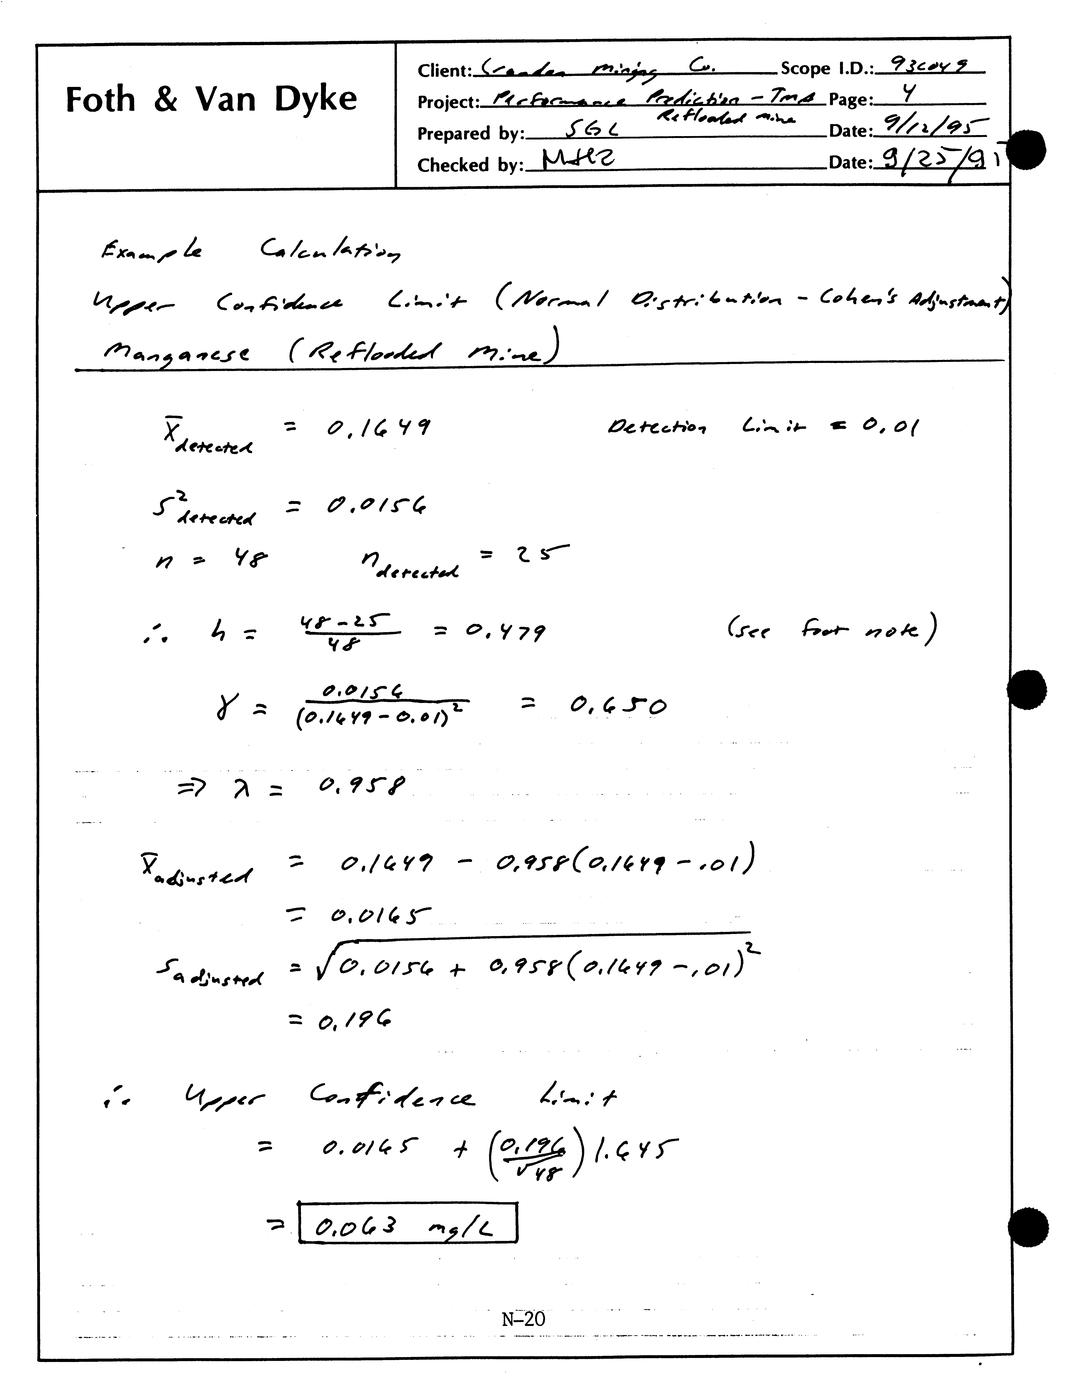 Foth & Van Dyke
Client: Crandon Mining Co. Scope I.D.: 93C049
Project: Performance Prediction - TMA Page: 4
Reflooded Mine
Prepared by: SGL Date: 9/12/95
Checked by: Date: 9/25/95
Example Calculation
Upper Confidence Limit (Normal Distribution - Cohen's Adjustment)
Manganese (Reflooded Mine)
X̄detected = 0.1649 Detection Limit = 0.01
S²detected = 0.0156
n = 48 ndetected = 25
∴ h = (48-25)/48 = 0.479 (see foot note)
γ = 0.0156/(0.1649-0.01)² = 0.650
⇒ λ = 0.958
X̄adjusted = 0.1649 - 0.958(0.1649-.01)
= 0.0165
Sadjusted = √(0.0156 + 0.958(0.1649-.01)²)
= 0.196
∴ Upper Confidence Limit
= 0.0165 + (0.196/√48) 1.645
= 0.063 mg/L
N-20